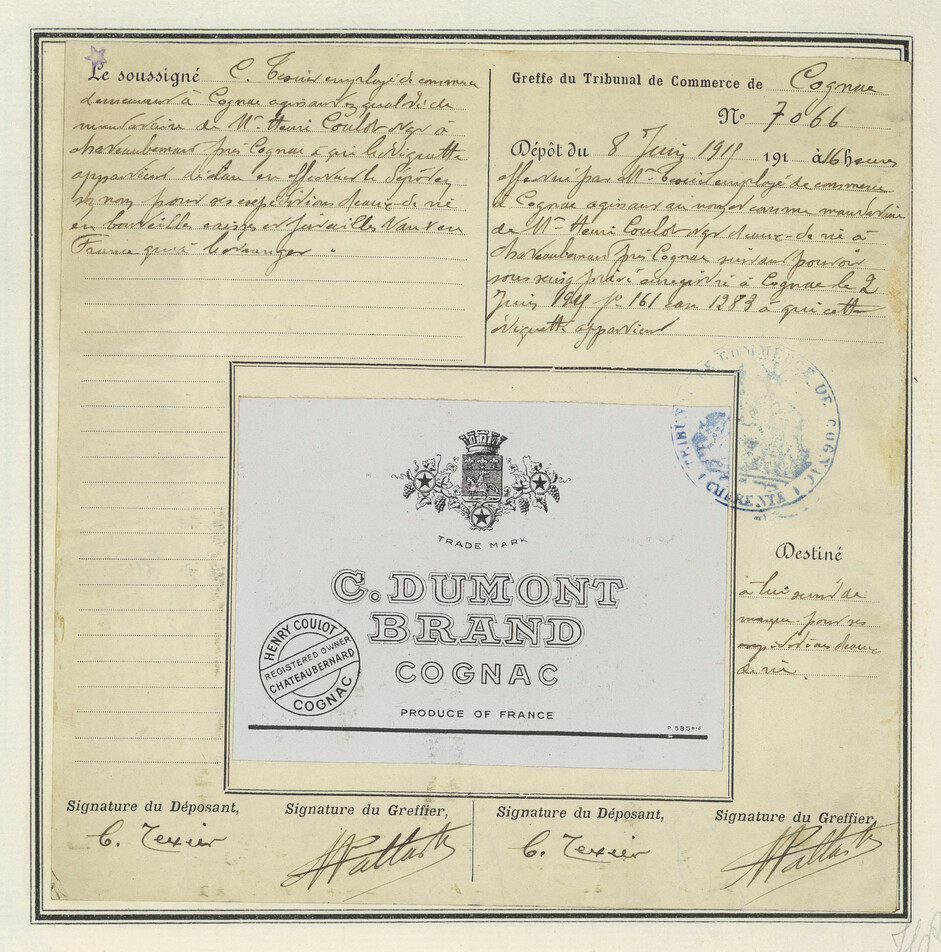 Le soussigné C. Texier employé de commerce
demeurant à Cognac agissant en qualité de
mandataire de Mr Henri Coulot Ngt à
chateaubernard près Cognac à qui la vignette
appartient déclare en effectuer le dépôt en
son nom pour ses expéditions d'eaux-de-vie
en bouteilles caisses et futailles tant en
France qu'à l'étranger.
Greffe du Tribunal de Commerce de Cognac
No 7066
Dépôt du 8 Juin 191 à 16 heures
effectué par Mr Texier employé de commerce
à Cognac agissant au nom et comme mandataire
de Mr Henri Coulot Ngt d'eaux-de-vie à
chateaubernard près Cognac suivant pouvoir
sous seing privé enregistré à Cognac le 2
Juin fo 161 case 1283 à qui cette
vignette appartient
TRIBUNAL DE COMMERCE DE COGNAC
(CHARENTE)
TRADE MARK
C. DUMONT
BRAND
COGNAC
HENRY COULOT
REGISTERED OWNER
CHATEAUBERNARD
COGNAC
PRODUCE OF FRANCE
P 585
Destiné
à lui servir de
marque pour ses
expéditions d'eaux
de vie.
Signature du Déposant,
C. Texier
Signature du Greffier,
Signature du Déposant,
C. Texier
Signature du Greffier,